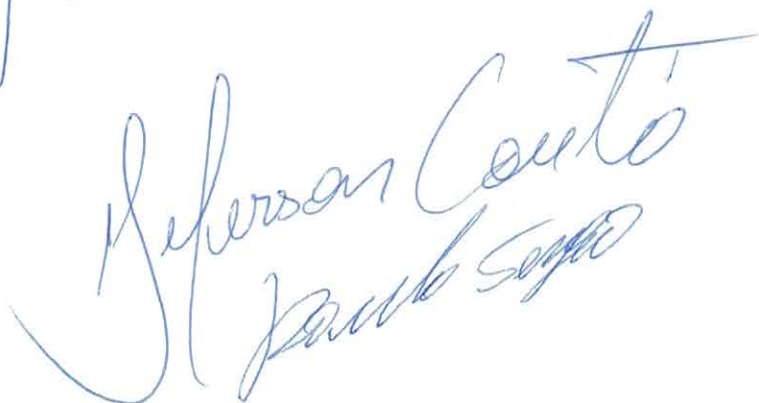 Jeferson Couto
Paulo Sergio